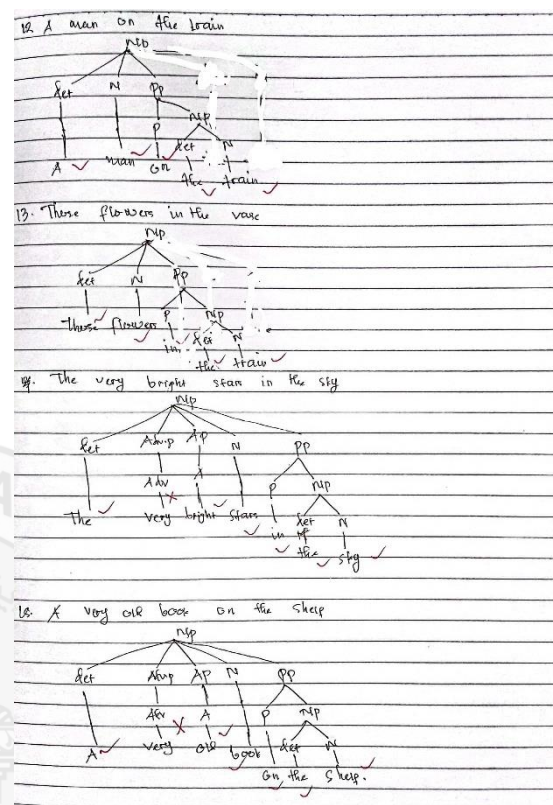 12. A man on the train
NP
det N PP
P NP
det N
A man on
the train
13. These flowers in the vase
NP
det N PP
P NP
These flowers det N
in the train
The very bright stars in the sky
NP
det Advp AP N PP
Adv A P NP
The very bright stars in det N
the sky
A very old book on the shelp
NP
det Advp AP N PP
Adv A P NP
A very old book det N
on the shelp.